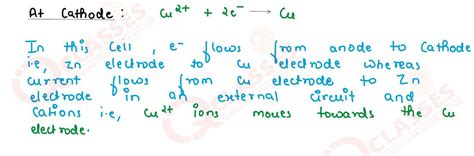 At Cathode : Cu²⁺ + 2e⁻ → Cu
In this Cell, e⁻ flows from anode to Cathode
i.e, Zn electrode to Cu electrode whereas
current flows from Cu electrode to Zn
electrode in an external circuit and
Cations i.e, Cu²⁺ ions moves towards the Cu
electrode.
CLASSES
CLASSES